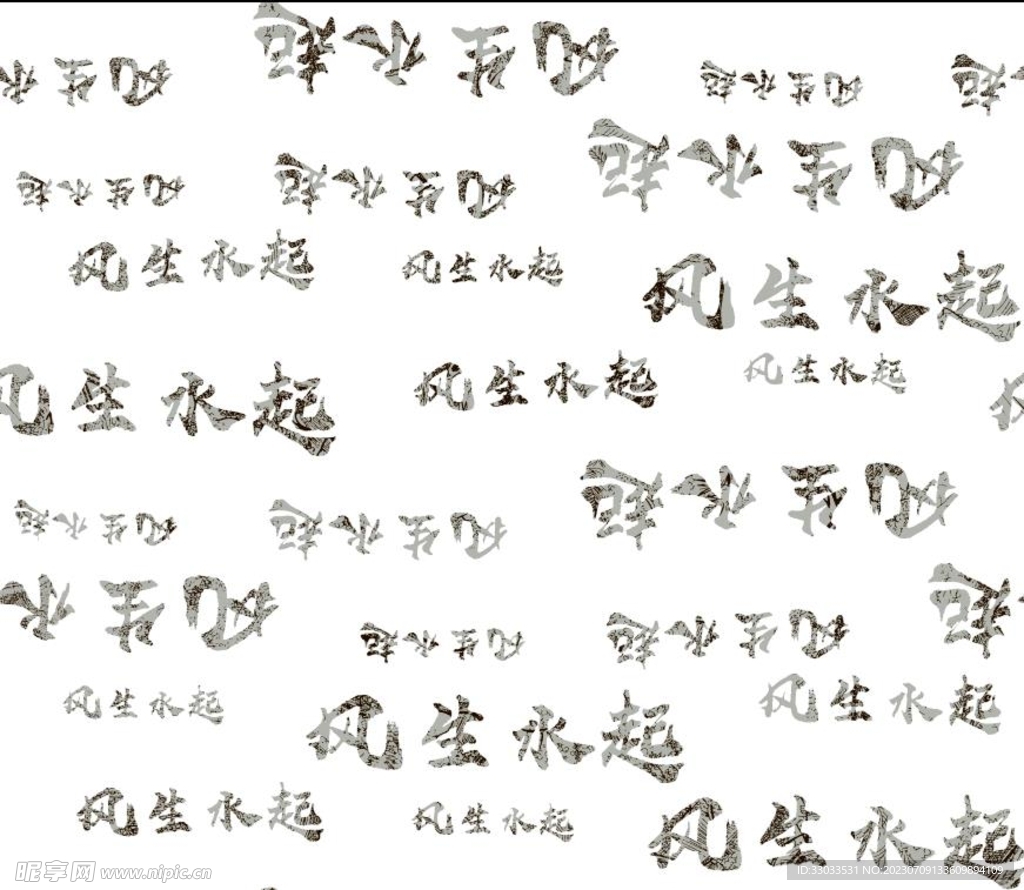 风生水起
风生水
风生水起
起
风生水起
风生水起
风生水起
风生水起
风生水起
风生水起
风生水起
风生水起
风生水起
风生水起
风生水起
风生水起
风生水
起
风生水起
风生水起
风生水起
风生水起
风生水起
风生水起
风生水起
风生水起
昵享网 www.nipic.cn
ID:33033531 NO:20230709133609894109